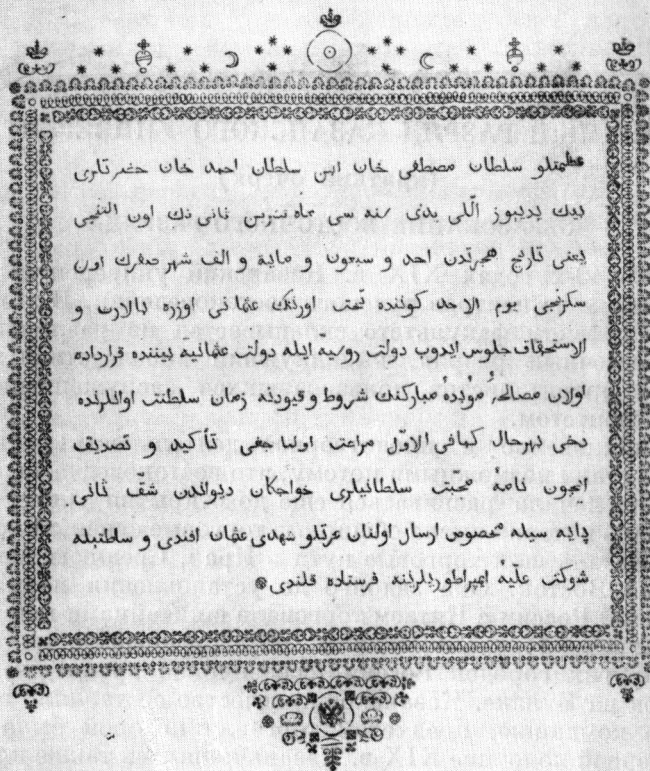 عظمتلو سلطان مصطفى خان ابن سلطان احمد خان حضرتلرى
بيك يديوز اللى يدى سنه سى ماه تشرين ثانى نك اون التنجى
يعنى تاريخ هجرتدن احد و سبعون و ماية و الف شهر صفرك اون
سكزنجى يوم الاحد كوننده تخت اورنك عثمانى اوزره بالارث و
الاستحقاق جلوس ايدوب دولت روسيه ايله دولت عثمانيه بيننده قرارداده
اولان مصالحه مؤبده مباركنك شروط و قيودينه زمان سلطنت اوائلرنده
دخى بهرحال كمافى الاول مراعت اولنا جغى تأكيد و تصديف
انچون نامه سلطانيلرى خواجكان ديواندن شف ثانى
پايه سيله مخصوص ارسال اولنان عزتلو شهدى عثمان افندى و سلطتيله
شوكتى عليه امپراطوريليلينه فرستاده قلندى